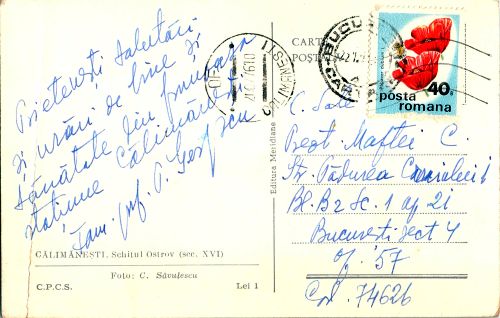 Prietenești salutări
și urări de bine și
sănătate din frumoasa
stațiune Călimănești
Fam. prof. P. Georgescu
CĂLIMĂNEȘTI, Schitul Ostrov (sec. XVI)
Foto: C. Săvulescu
C.P.C.S. Lei 1
Editura Meridiane
CARTE
POȘTALĂ
BUCUREȘTI
CĂLIMĂNEȘTI
40
posta
romana
C. Sale
Preot Maftei C.
Str. Pădurea
Bl. B2 Sc. 1 ap 21
București sect 4
of. 57
Cod. 74626